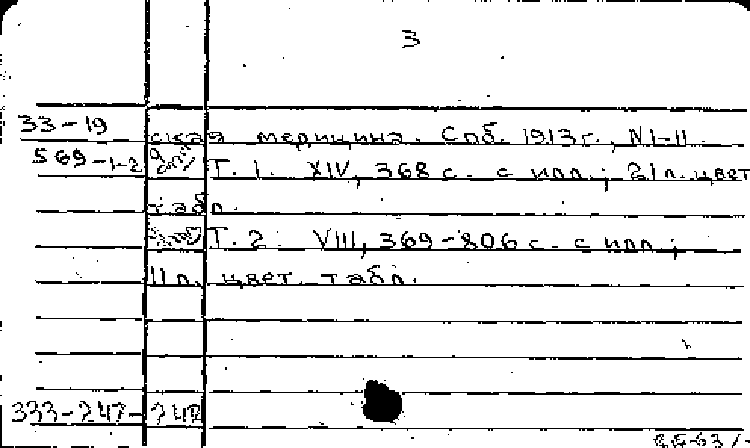 3
33-19
ская медицина. Спб. 1913 г., N 1-11.
569-1-2 Т. 1. XIV, 368 с. с илл.; 21 л. цвет
табл.
Т. 2. VIII, 369-806 с. с илл.;
11 л. цвет. табл.
333-247-